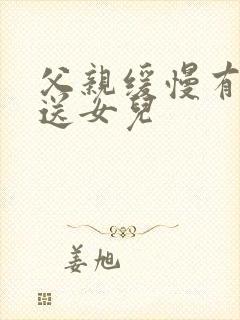 父親缓慢有
送女兒
姜旭